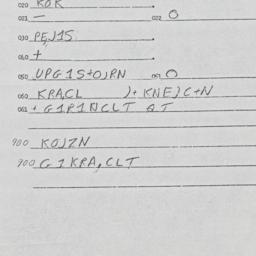 020 KOK
021 — 022 O
030 PE,J1S
040 +
050 UPG1S+O)PN 051 O
060 KPA,CL )+ KNE)C+N
061 + G1P1NCLT QT
900 KOJZN
900 G1KPA,CLT